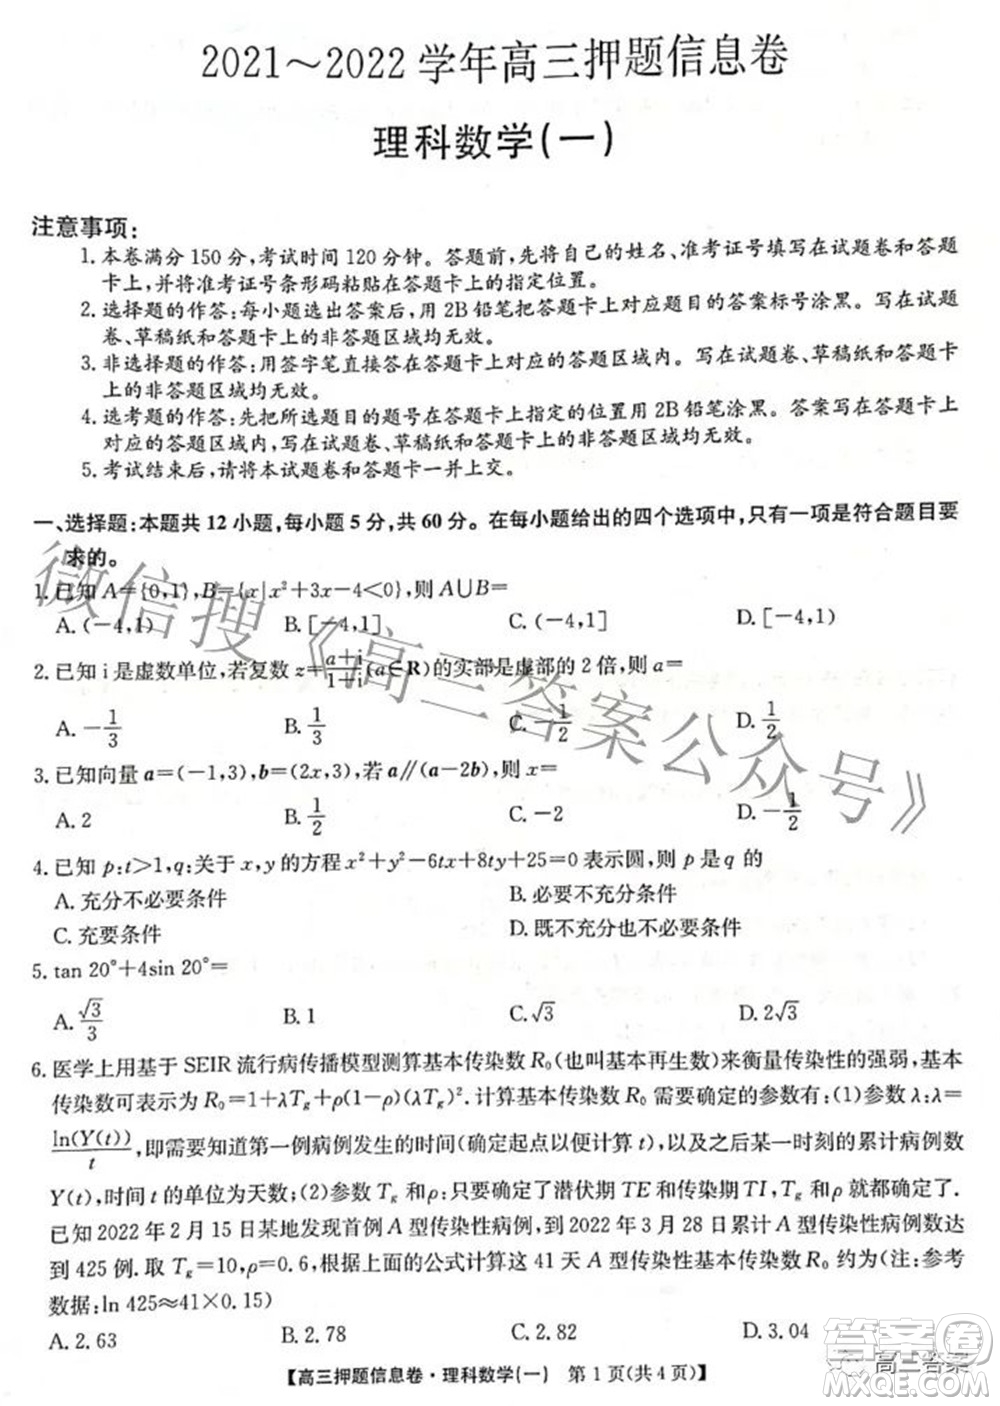 2021～2022学年高三押题信息卷
理科数学(一)
注意事项:
1.本卷满分150分,考试时间120分钟。答题前,先将自己的姓名、准考证号填写在试题卷和答题
卡上,并将准考证号条形码粘贴在答题卡上的指定位置。
2.选择题的作答:每小题选出答案后,用2B铅笔把答题卡上对应题目的答案标号涂黑。写在试题
卷、草稿纸和答题卡上的非答题区域均无效。
3.非选择题的作答:用签字笔直接答在答题卡上对应的答题区域内。写在试题卷、草稿纸和答题卡
上的非答题区域均无效。
4.选考题的作答:先把所选题目的题号在答题卡上指定的位置用2B铅笔涂黑。答案写在答题卡上
对应的答题区域内,写在试题卷、草稿纸和答题卡上的非答题区域均无效。
5.考试结束后,请将本试题卷和答题卡一并上交。
一、选择题:本题共12小题,每小题5分,共60分。在每小题给出的四个选项中,只有一项是符合题目要
求的。
1.已知A={0,1},B={x|x²+3x-4<0},则A∪B=
A.(-4,1) B.[-4,1] C.(-4,1] D.[-4,1)
2.已知i是虚数单位,若复数z=\frac{a+i}{1+i}(a∈R)的实部是虚部的2倍,则a=
A.-\frac{1}{3} B.\frac{1}{3} C.-\frac{1}{2} D.\frac{1}{2}
3.已知向量a=(-1,3),b=(2x,3),若a∥(a-2b),则x=
A.2 B.\frac{1}{2} C.-2 D.-\frac{1}{2}
4.已知p:t>1,q:关于x,y的方程x²+y²-6tx+8ty+25=0表示圆,则p是q的
A.充分不必要条件 B.必要不充分条件
C.充要条件 D.既不充分也不必要条件
5.tan 20°+4sin 20°=
A.\frac{√3}{3} B.1 C.√3 D.2√3
6.医学上用基于SEIR流行病传播模型测算基本传染数R₀(也叫基本再生数)来衡量传染性的强弱,基本
传染数可表示为R₀=1+λTg+ρ(1-ρ)(λTg)².计算基本传染数R₀需要确定的参数有:(1)参数λ:λ=
\frac{ln(Y(t))}{t},即需要知道第一例病例发生的时间(确定起点以便计算t),以及之后某一时刻的累计病例数
Y(t),时间t的单位为天数;(2)参数Tg和ρ:只要确定了潜伏期TE和传染期TI,Tg和ρ就都确定了.
已知2022年2月15日某地发现首例A型传染性病例,到2022年3月28日累计A型传染性病例数达
到425例.取Tg=10,ρ=0.6,根据上面的公式计算这41天A型传染性基本传染数R₀约为(注:参考
数据:ln 425≈41×0.15)
A.2.63 B.2.78 C.2.82 D.3.04
【高三押题信息卷·理科数学(一) 第1页(共4页)】
微信搜《高三答案公众号》
答案圈
高三答案